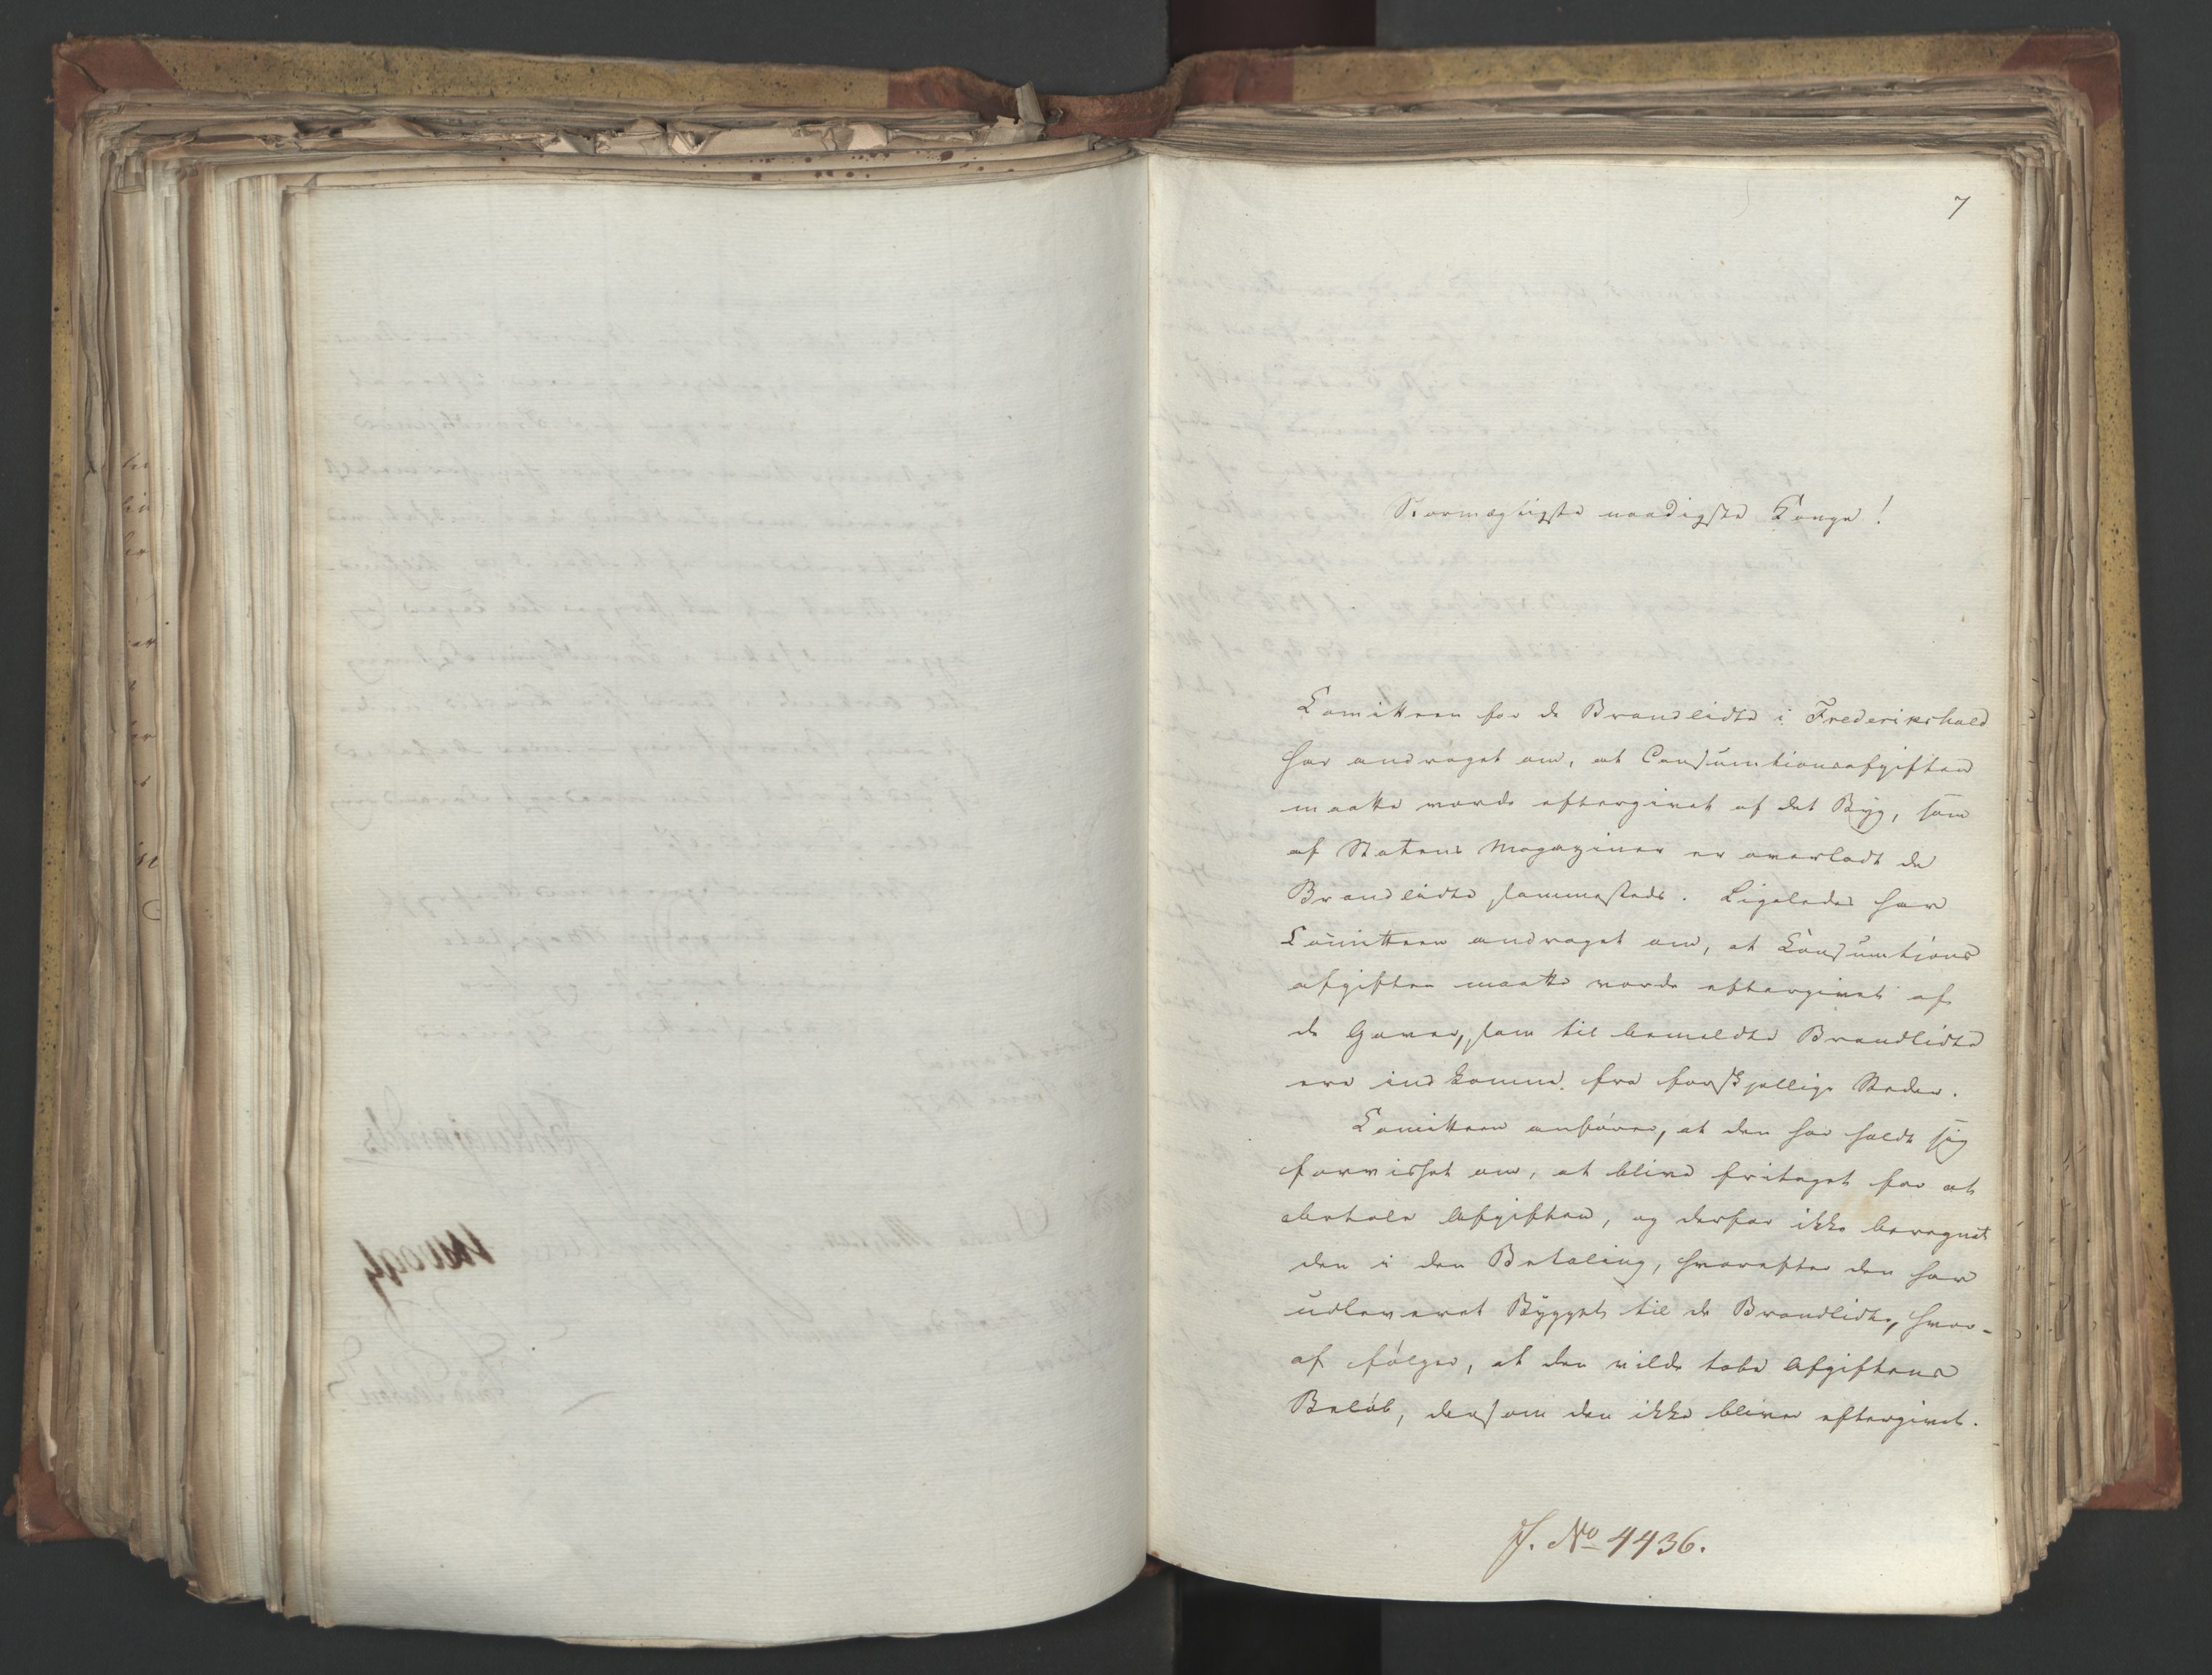 7
Stormægtigste naadigste Konge!
Comitteen for de Brandlidte i Frederikshald
har andraget om, at Consumtionsafgiften
maatte vorde eftergivet af det Byg, som
af Statens Magaziner er overladt de
Brandlidte sammesteds. Ligeledes har
Comitteen andraget om, at Consumtions
afgiften maatte vorde eftergivet af
de Gaver, som til bemeldte Brandlidte
ere indkomne fra forskjellige Steder.
Comitteen anfører, at den har holdt sig
forvisset om, at blive fritaget for at
betale Afgiften, og derfor ikke beregnet
den i den Betaling, hvorefter den har
udleveret Bygget til de Brandlidte, hvor-
af følger, at den vilde tabe Afgiftens
Beløb, dersom den ikke bliver eftergivet.
J. No 4436.